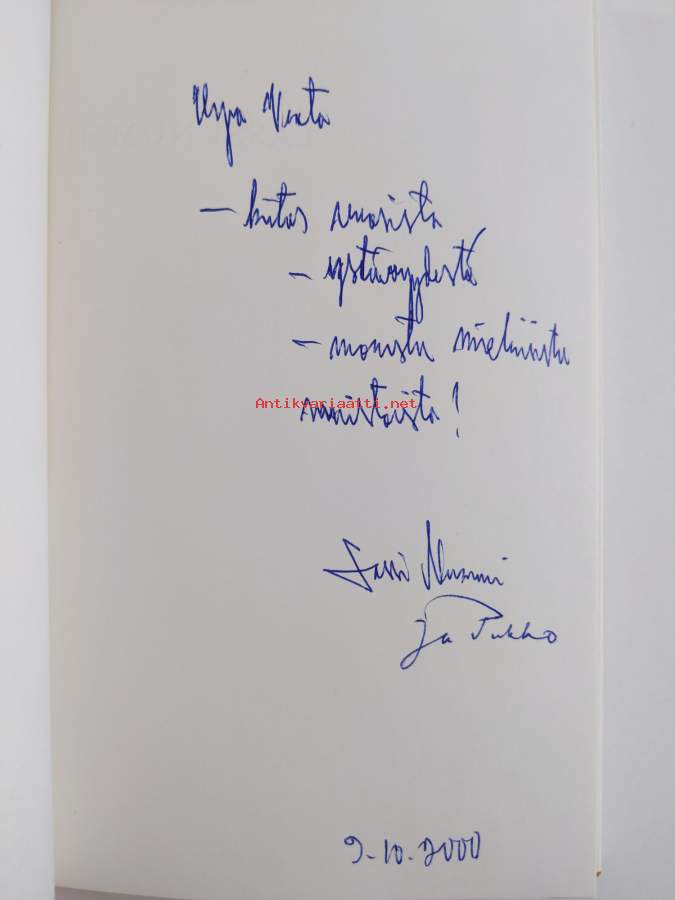 – kiitos vuosista
– ystävyydestä
– monista mieluisista
muistoista!
Antikvariaatti.net
Lassi Nummi
ja Pirkko
9.10.2000